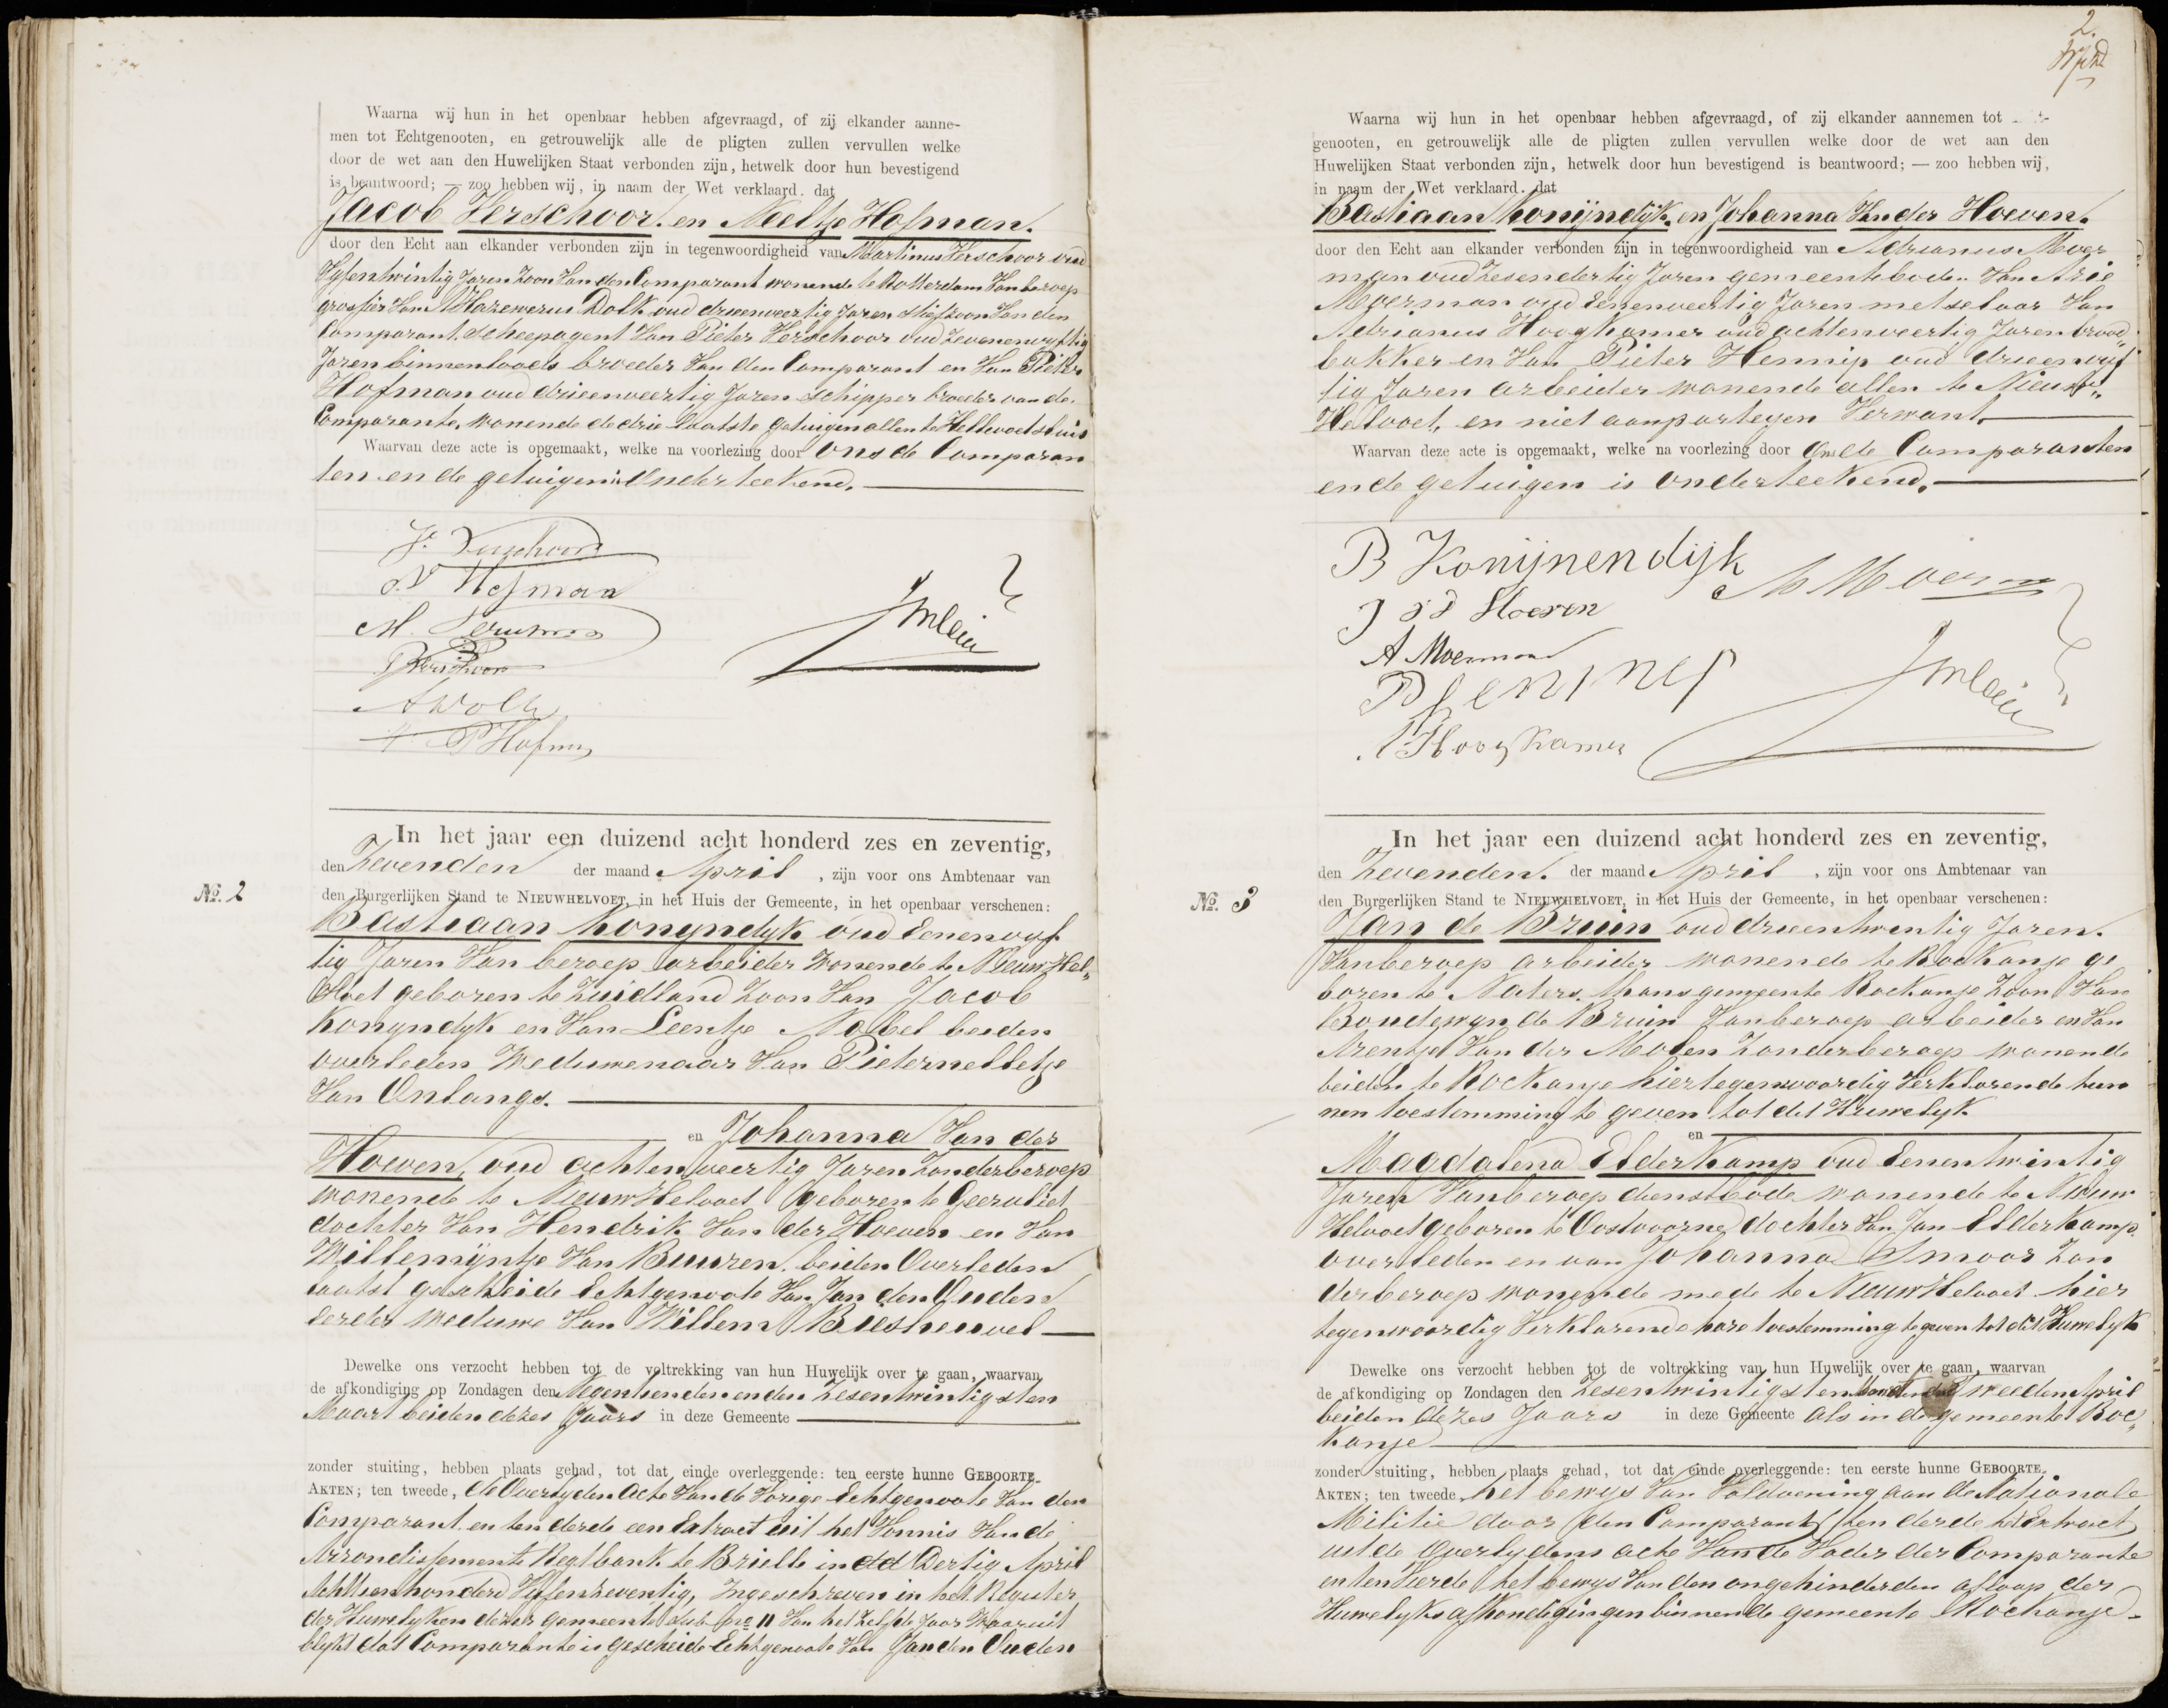 Waarna wij hun in het openbaar hebben afgevraagd, of zij elkander aanne-
men tot Echtgenooten, en getrouwelijk alle de pligten zullen vervullen welke
door de wet aan den Huwelijken Staat verbonden zijn, hetwelk door hun bevestigend
is beantwoord; — zoo hebben wij, in naam der Wet verklaard, dat
Jacob Verschoor. en Neeltje Hofman.
door den Echt aan elkander verbonden zijn in tegenwoordigheid van Martinus Verschoor oud
Vijfentwintig Jaren Zoon van den Comparant wonende te Rotterdam van beroep
grossier van Dolk oud drieenveertig Jaren Stiefzoon van den
Comparant Scheepagent van Pieter Verschoor oud Zevenenvyftig
Jaren binnenloods broeder van den Comparant en van Pieter
Hofman oud drieenveertig Jaren Schipper broeder van de
Comparante, wonende de drie laatste getuigen allen te Hellevoetsluis
Waarvan deze acte is opgemaakt, welke na voorlezing door ons de Comparan
ten en de getuigen is Onderteekend.
J. Verschoor
N Hofman
M.
P Verschoor
A Dolk
P Hofman
No. 2
In het jaar een duizend acht honderd zes en zeventig,
den Zevenden der maand April, zijn voor ons Ambtenaar van
den Burgerlijken Stand te NIEUWHELVOET, in het Huis der Gemeente, in het openbaar verschenen:
Bastiaan Konyndyk oud Eenenvyf
tig Jaren van beroep arbeider wonende te Nieuw Hel„
Voet geboren te Zuidland Zoon van Jacob
Konyndyk en van Leentje Nobel beiden
overleden Weduwenaar van Pieternelletje
van Onlangs.
en Johanna van der
Hoeven, oud achtenveertig Jaren Zonder beroep
wonende te Nieuw Helvoet geboren te Geervliet
dochter van Hendrik van der Hoeven en van
Willemijntje van Buuren, beiden Overleden
laatst gescheide Echtgenoote van Jan den Ouden
eerder weduwe van Willem Biesheuvel
Dewelke ons verzocht hebben tot de voltrekking van hun Huwelijk over te gaan, waarvan
de afkondiging op Zondagen den Negentienden en den Zesentwintigsten
Maart beiden dezes Jaars in deze Gemeente
zonder stuiting, hebben plaats gehad, tot dat einde overleggende: ten eerste hunne GEBOORTE-
AKTEN; ten tweede, de Overlyden Acte van de Vorige Echtgenoote van den
Comparant en ten derde een Extract uit het Vonnis van de
Arrondissements Regtbank te Brielle in dd Dertig April
Achttienhonderd Vijfenzeventig, Ingeschreven in het Register
der Huwelyken dezer Gemeente sub No 11 van het Zelfde Jaar Waaruit
blykt dat Comparante is gescheide Echtgenoote van Jan den Ouden
2.
Waarna wij hun in het openbaar hebben afgevraagd, of zij elkander aannemen tot
genooten, en getrouwelijk alle de pligten zullen vervullen welke door de wet aan den
Huwelijken Staat verbonden zijn, hetwelk door hun bevestigend is beantwoord; — zoo hebben wij,
in naam der Wet verklaard, dat
Bastiaan Konijndijk en Johanna van der Hoeven.
door den Echt aan elkander verbonden zijn in tegenwoordigheid van Adrianus Moer
man oud Zesendertig Jaren gemeentebode van Arie
Moerman oud Eenenveertig Jaren metselaar van
Adrianus Hoogkamer oud achtenveertig Jaren brood
bakker en van Pieter Hennip oud drieenvyf
tig Jaren arbeider wonende allen te Nieuw„
Helvoet, en niet aan partyen Verwant
Waarvan deze acte is opgemaakt, welke na voorlezing door Ons de Comparanten
en de getuigen is Onderteekend.
B Konijnendijk
A Moerm
J vd Hoeven
A Moerman
P hennep
A Hoogkamer
No. 3
In het jaar een duizend acht honderd zes en zeventig,
den Zevenden. der maand April, zijn voor ons Ambtenaar van
den Burgerlijken Stand te NIEUWHELVOET, in het Huis der Gemeente, in het openbaar verschenen:
Jan de Bruin oud drieentwintig Jaren.
van beroep arbeider wonende te Rockanje ge
boren te Naters, thans gemeente Rockanje Zoon van
Boudewyn de Bruin van beroep arbeider en van
Arentje van der Molen Zonder beroep wonende
beiden te Rockanje hier tegenwoordig Verklarende hun
nen toestemming te geven tot dit Huwelyk
en
Magdalena Elderkamp oud Eenentwintig
Jaren van beroep dienstbode wonende te Nieuw
Helvoet geboren te Oostvoorne, dochter van Jan Elderkamp
overleden en van Johanna Smoor Zon
der beroep wonende mede te Nieuw Helvoet hier
tegenwoordig Verklarende hare toestemming te geven tot dit Huwelyk
Dewelke ons verzocht hebben tot de voltrekking van hun Huwelijk over te gaan, waarvan
de afkondiging op Zondagen den Zesentwintigsten Maart en den tweeden April
beiden dezes Jaars in deze Gemeente als in de gemeente Roc„
kanje
zonder stuiting, hebben plaats gehad, tot dat einde overleggende: ten eerste hunne GEBOORTE-
AKTEN; ten tweede, het bewys van Voldoening aan de Nationale
Militie door den Comparant, ten derde het Extract
uit de Overlydens acte van de Vader der Comparante
en ten Vierde het bewys van den ongehinderden afloop der
Huwelyks afkondigingen binnen de gemeente Rockanje.